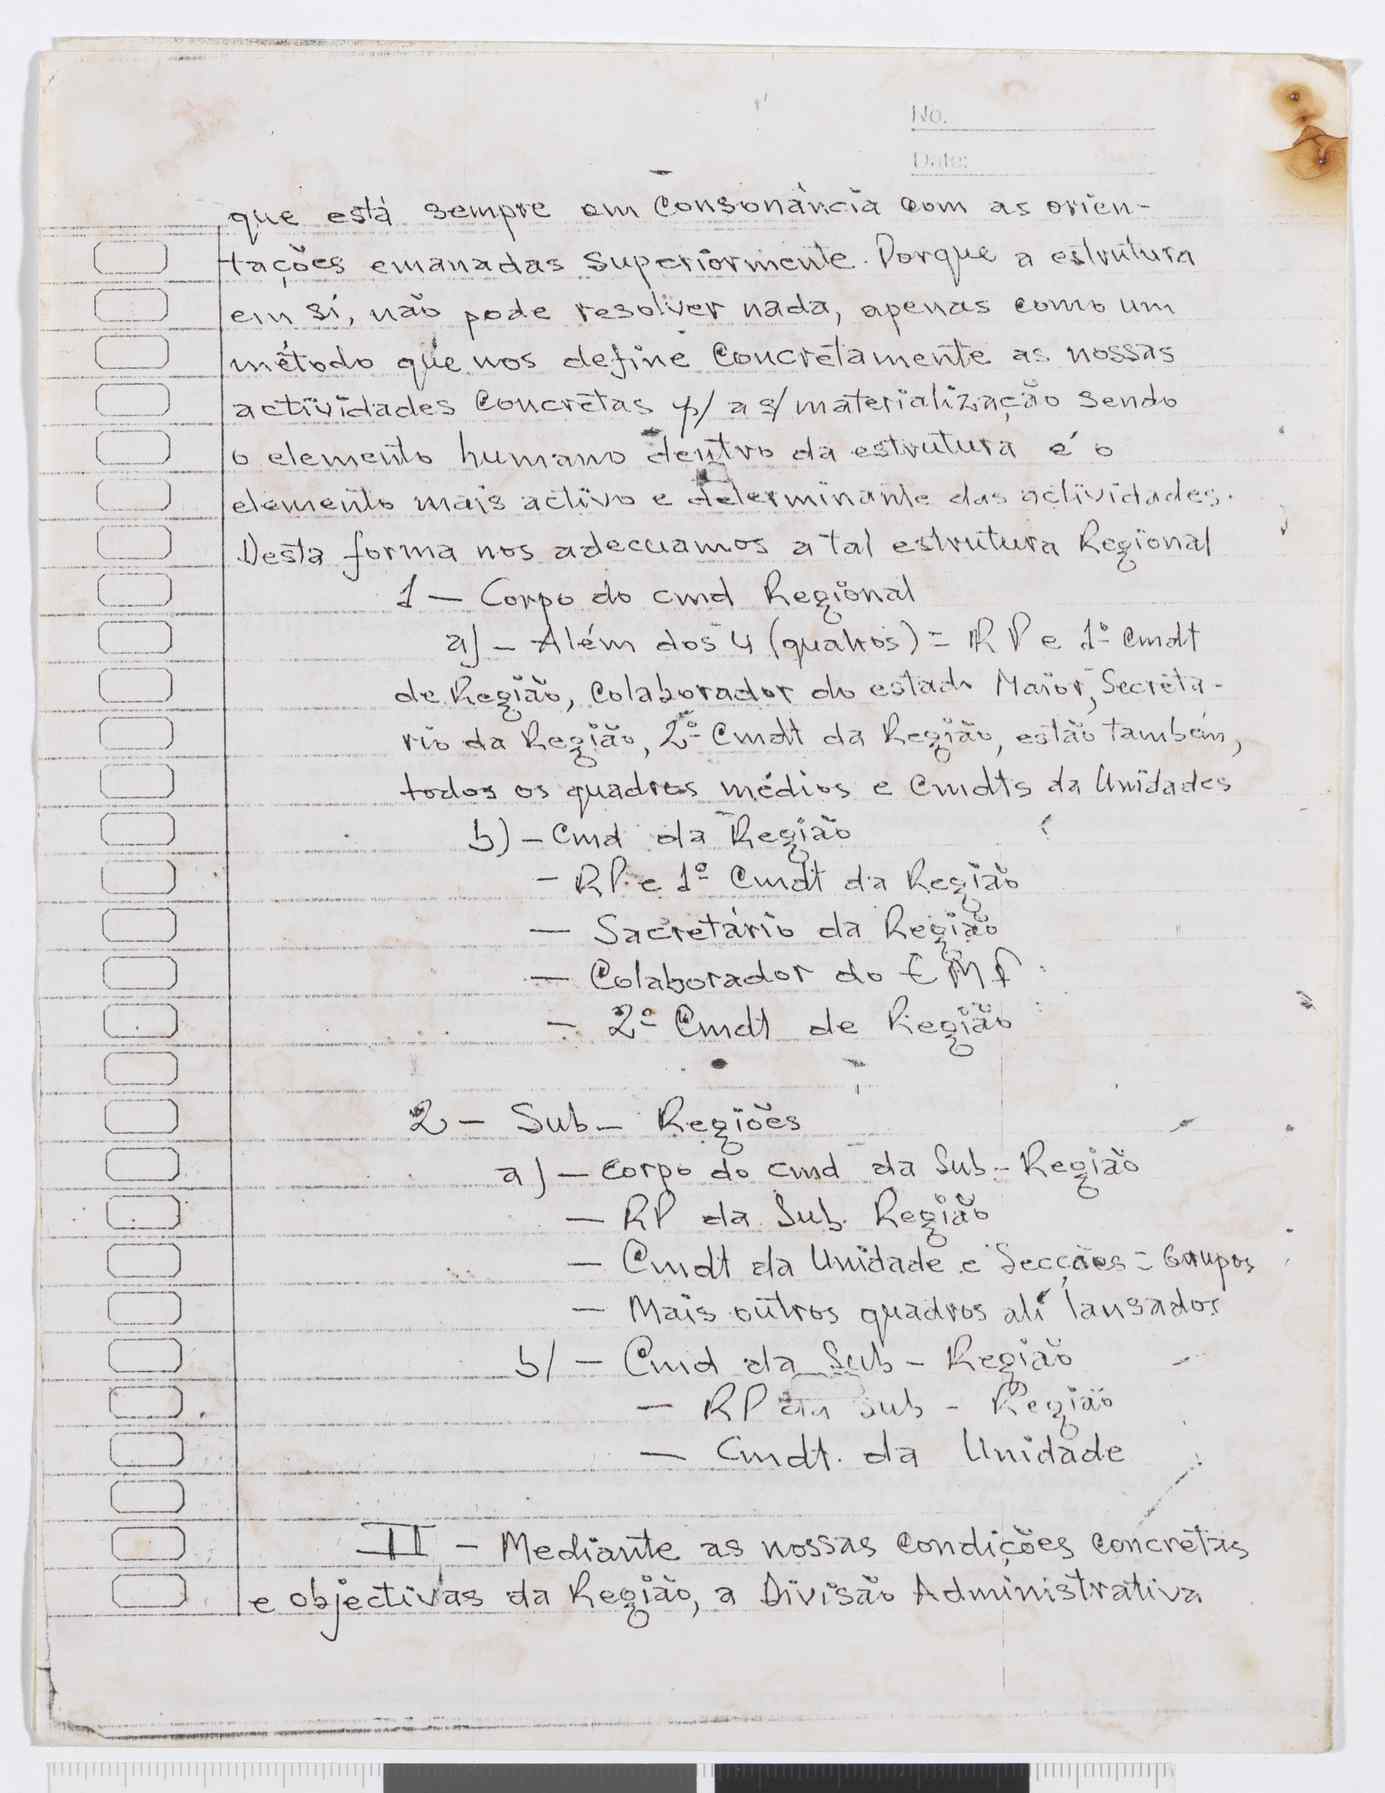 No.
Date:
que está sempre em Consonância com as orien-
tações emanadas superiormente. Porque a estrutura
em si, não pode resolver nada, apenas como um
método que nos define Concretamente as nossas
actividades Concretas p/ a s/ materialização sendo
o elemento humano dentro da estrutura é o
elemento mais activo e determinante das actividades.
Desta forma nos adecuamos a tal estrutura Regional
1 — Corpo do cmd Regional
a) — Além dos 4 (quatros) = RP e 1º Cmdt
de Região, Colaborador do estado Maior, Secretá-
rio da Região, 2º Cmdt da Região, estão também,
todos os quadros médios e Cmdts da Unidades
b) — Cmd da Região
— RP e 1º Cmdt da Região
— Sacretário da Região
— Colaborador do EMF
— 2º Cmdt de Região
2 — Sub — Regiões
a) — Corpo do cmd da Sub — Região
— RP da Sub. Região
— Cmdt da Unidade e Secções = Grupos
— Mais outros quadros ali lansados
b/ — Cmd da Sub — Região
— RP da Sub — Região
— Cmdt. da Unidade
II — Mediante as nossas Condições Concretas
e objectivas da Região, a Divisão Administrativa